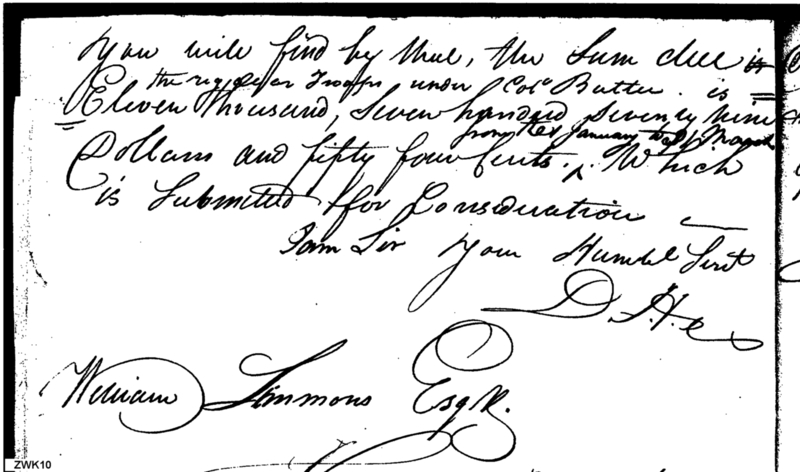 you will find by that, the Sum due is
the regular Troops under Colo Butler. is
Eleven thousand, Seven hundred Seventy nine
from the 1st January to 31st March
Dollars and fifty four Cents. ^ Which
is Submitted for Consideration
I am Sir your Humbl Servt
D. H.
William Simmons Esqr.
ZWK10